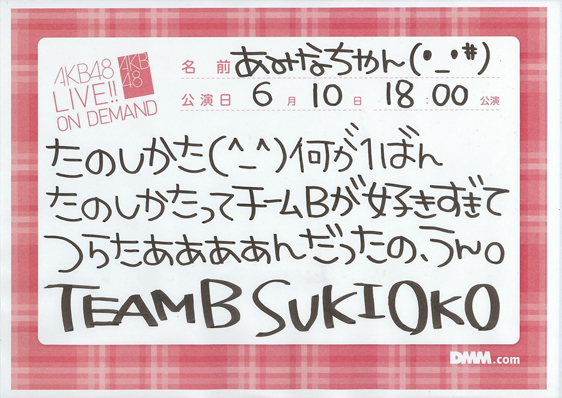 AKB48
LIVE!!
ON DEMAND
AKB
48
名前 あみなちゃん(•_•#)
公演日 6月10日 18:00 公演
たのしかた(^_^)何が1ばん
たのしかたってチームBが好きすぎて
つらたああああんだったの、うん。
TEAMB SUKIOKO
DMM.com